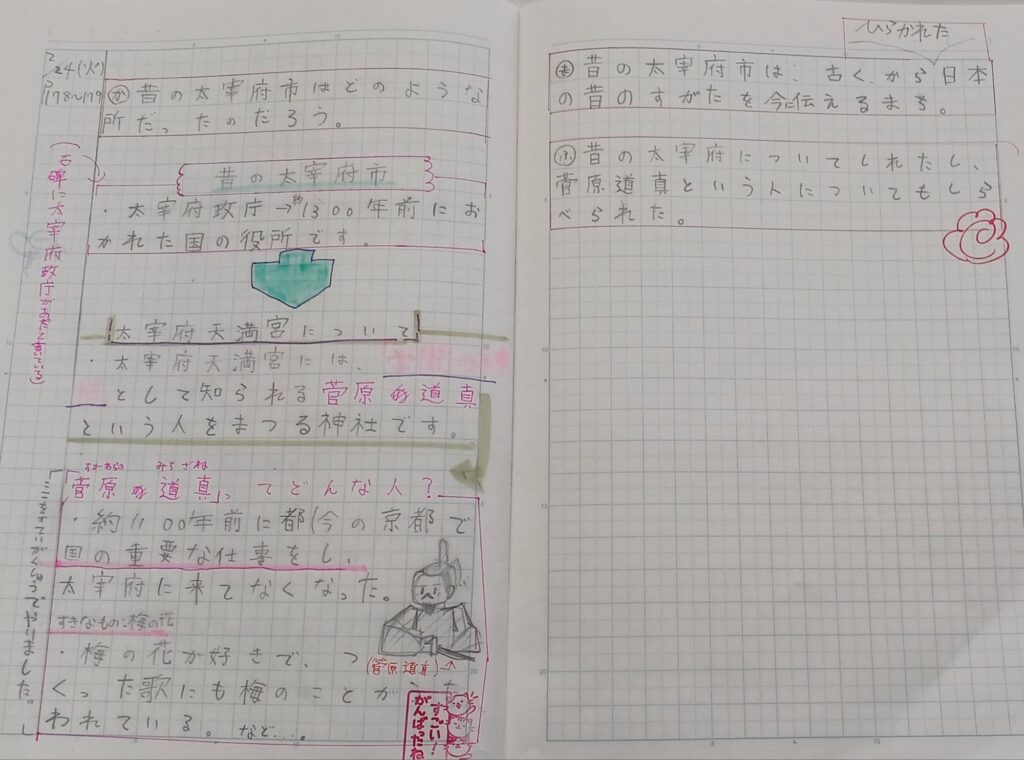 2/24(火)
P178~179
か 昔の太宰府市はどのような
所だったのだろう。
昔の太宰府市
・太宰府政庁→約1300年前にお
かれた国の役所です。
太宰府天満宮について
・太宰府天満宮には、
として知られる菅原の道真
という人をまつる神社です。
すがわらの みちざね
「菅原の道真」ってどんな人?
・約1100年前に都(今の京都で
国の重要な仕事をし、
太宰府に来てなくなった。
すきなもの:梅の花
・梅の花が好きで、つ
くった歌にも梅のことがうた
われている。など…。
(菅原道真)→
すごい!
がんばったね
ひらかれた
ま 昔の太宰府市は、古くから日本
の昔のすがたを今に伝えるまち。
ふ 昔の太宰府についてしれたし、
菅原道真という人についてもしら
べられた。